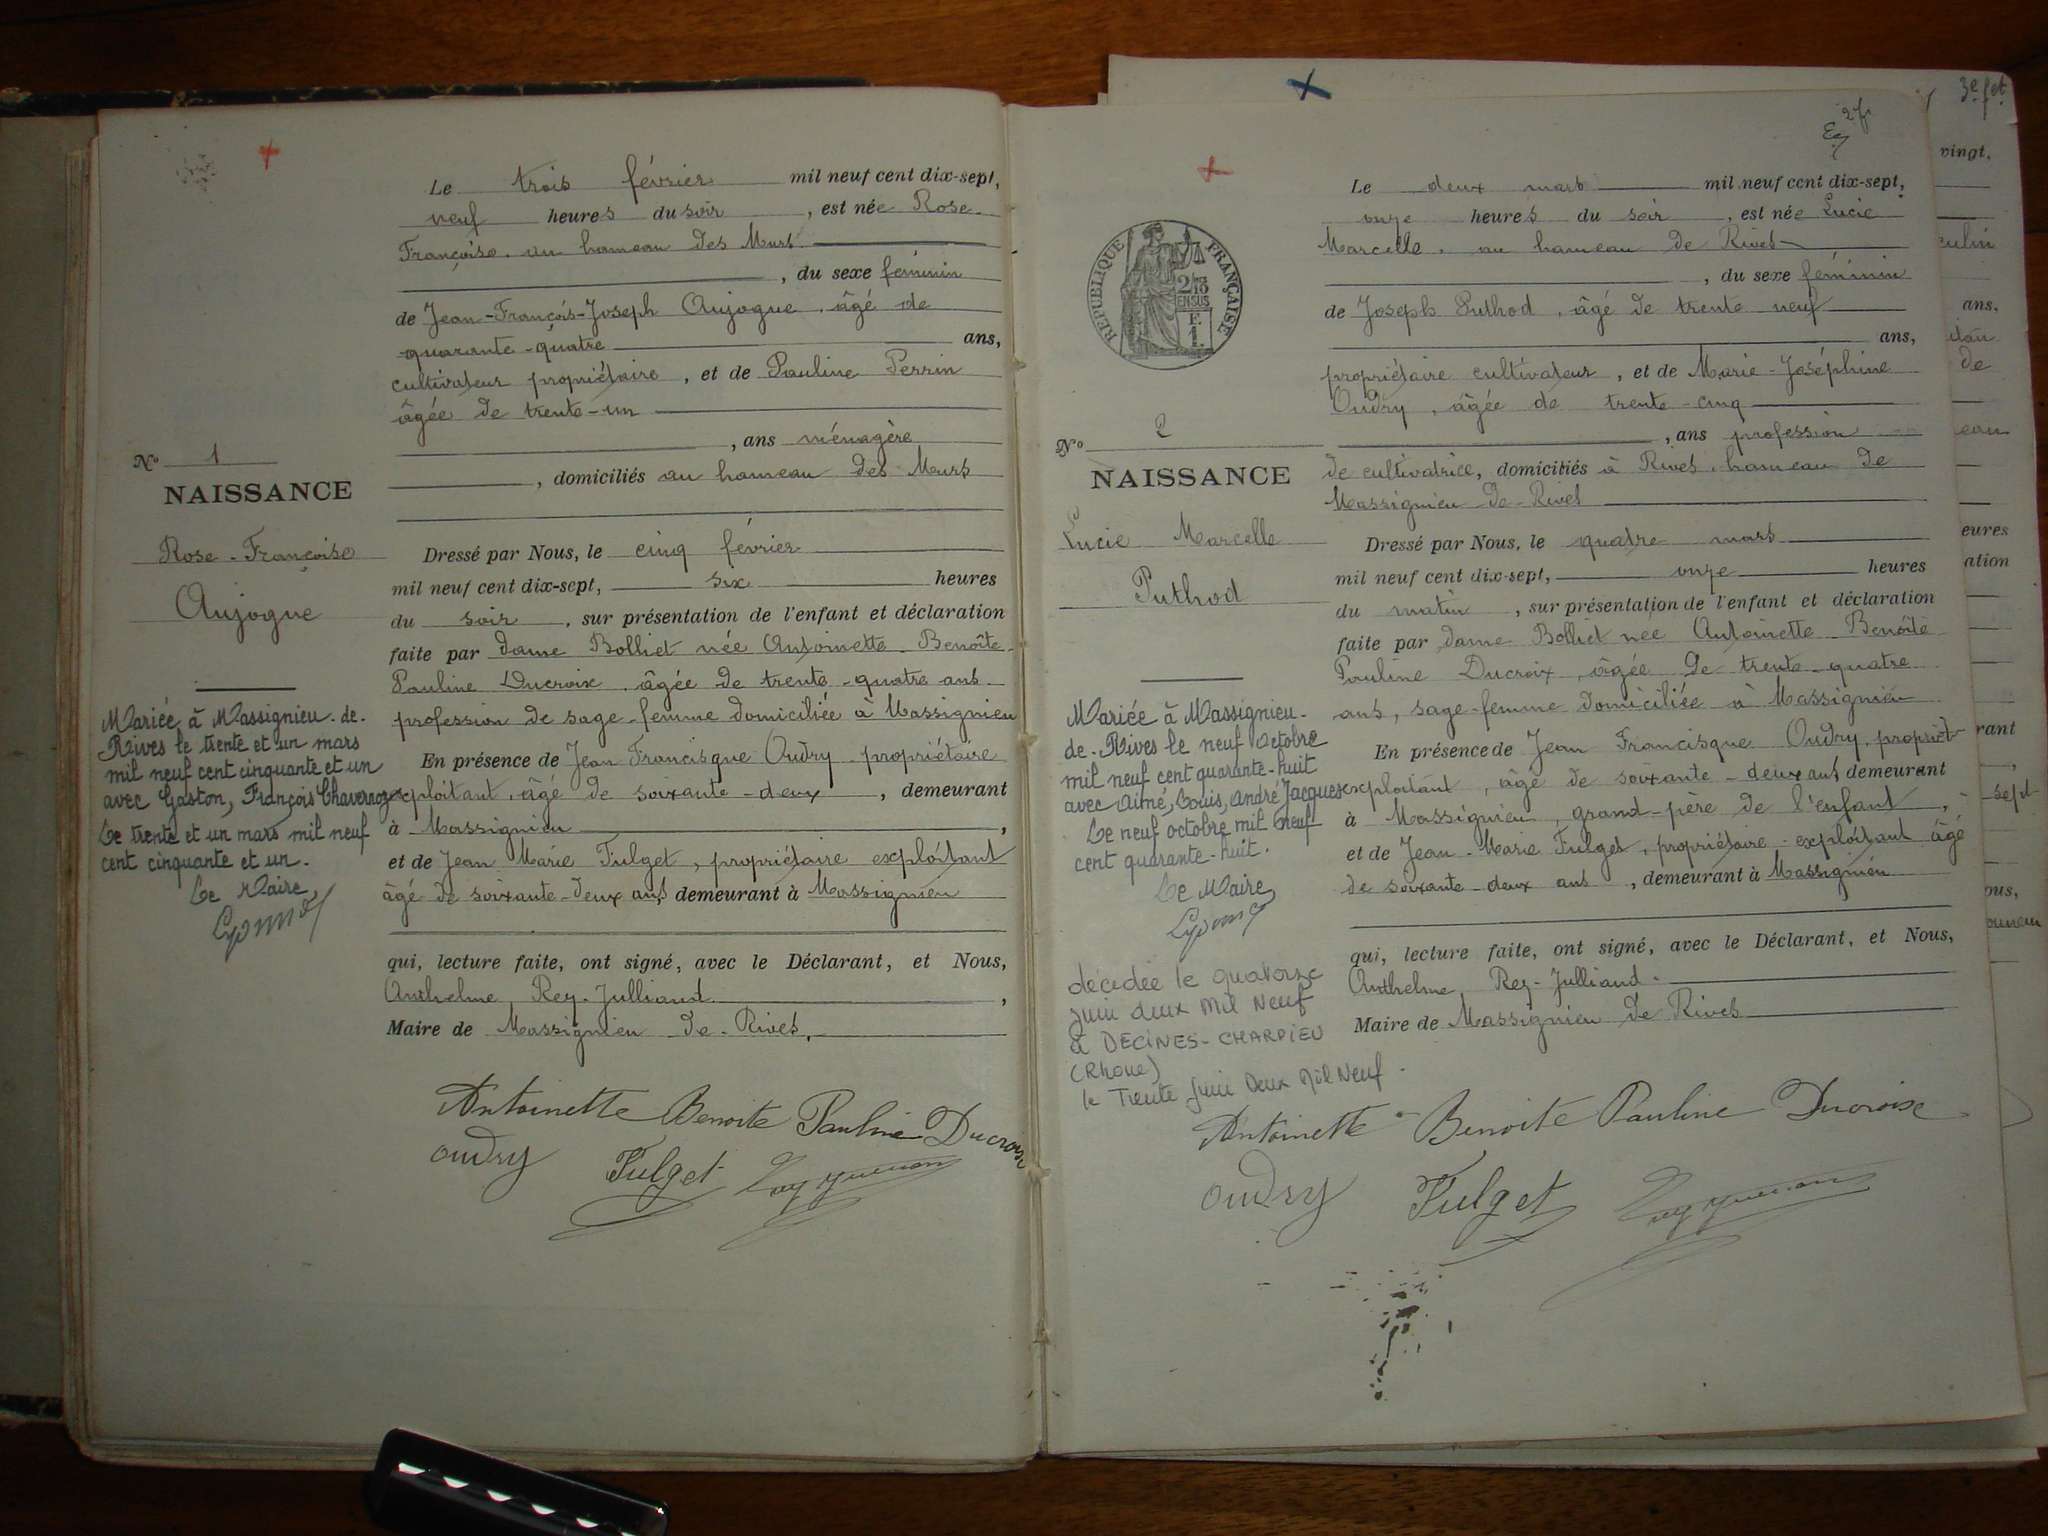 Le trois février mil neuf cent dix-sept,
neuf heures du soir, est née Rose
Françoise, au hameau des Murs
, du sexe féminin
de Jean-François-Joseph Aujogue, âgé de
quarante-quatre ans,
cultivateur propriétaire, et de Pauline Perrin
âgée de trente-un
, ans ménagère
, domiciliés au hameau des Murs
Dressé par Nous, le cinq février
mil neuf cent dix-sept, six heures
du soir, sur présentation de l'enfant et déclaration
faite par dame Bolliet née Antoinette Benoîte
Pauline Ducroix, âgée de trente-quatre ans
profession de sage-femme domiciliée à Massignieu
En présence de Jean Francisque Oudry propriétaire
exploitant, âgé de soixante-deux, demeurant
à Massignieu,
et de Jean Marie Fulget, propriétaire exploitant
âgé de soixante-deux ans demeurant à Massignieu
qui, lecture faite, ont signé, avec le Déclarant, et Nous,
Anthelme Rey-Julliand,
Maire de Massignieu de-Rives.
Antoinette Benoite Pauline Ducroix
oudry Fulget
N° 1
NAISSANCE
Rose-Françoise
Aujogue
Mariée à Massignieu-de-
Rives le trente et un mars
mil neuf cent cinquante et un
avec Gaston, François Chavernoz
Le trente et un mars mil neuf
cent cinquante et un.
Le Maire,
2 fr
3e fet
RÉPUBLIQUE FRANÇAISE
EN SUS
F.
1.
Le deux mars mil neuf cent dix-sept,
onze heures du soir, est née Lucie
Marcelle, au hameau de Rives
, du sexe féminin
de Joseph Puthod, âgé de trente neuf
ans,
propriétaire cultivateur, et de Marie-Joséphine
Oudry, âgée de trente-cinq
, ans profession
de cultivatrice, domiciliés à Rives, hameau de
Massignieu de-Rives
Dressé par Nous, le quatre mars
mil neuf cent dix-sept, onze heures
du matin, sur présentation de l'enfant et déclaration
faite par dame Bolliet née Antoinette Benoîte
Pauline Ducroix, âgée de trente-quatre
ans, sage-femme domiciliée à Massignieu
En présence de Jean Francisque Oudry, propriét-
exploitant, âgé de soixante-deux ans demeurant
à Massignieu, grand-père de l'enfant,
et de Jean-Marie Fulget, propriétaire-exploitant âgé
de soixante-deux ans, demeurant à Massignieu
qui, lecture faite, ont signé, avec le Déclarant, et Nous,
Anthelme Rey-Julliand.
Maire de Massignieu de Rives
Antoinette Benoite Pauline Ducroix
oudry Fulget
N° 2
NAISSANCE
Lucie Marcelle
Puthod
Mariée à Massignieu-
de-Rives le neuf octobre
mil neuf cent quarante-huit
avec Aimé, Louis, André Jacques
Le neuf octobre mil neuf
cent quarante-huit.
Le Maire
décédée le quatorze
juin deux mil neuf
à DECINES-CHARPIEU
(Rhone)
le Trente Juin Deux Mil Neuf.
vingt,
ans,
de
eures
ation